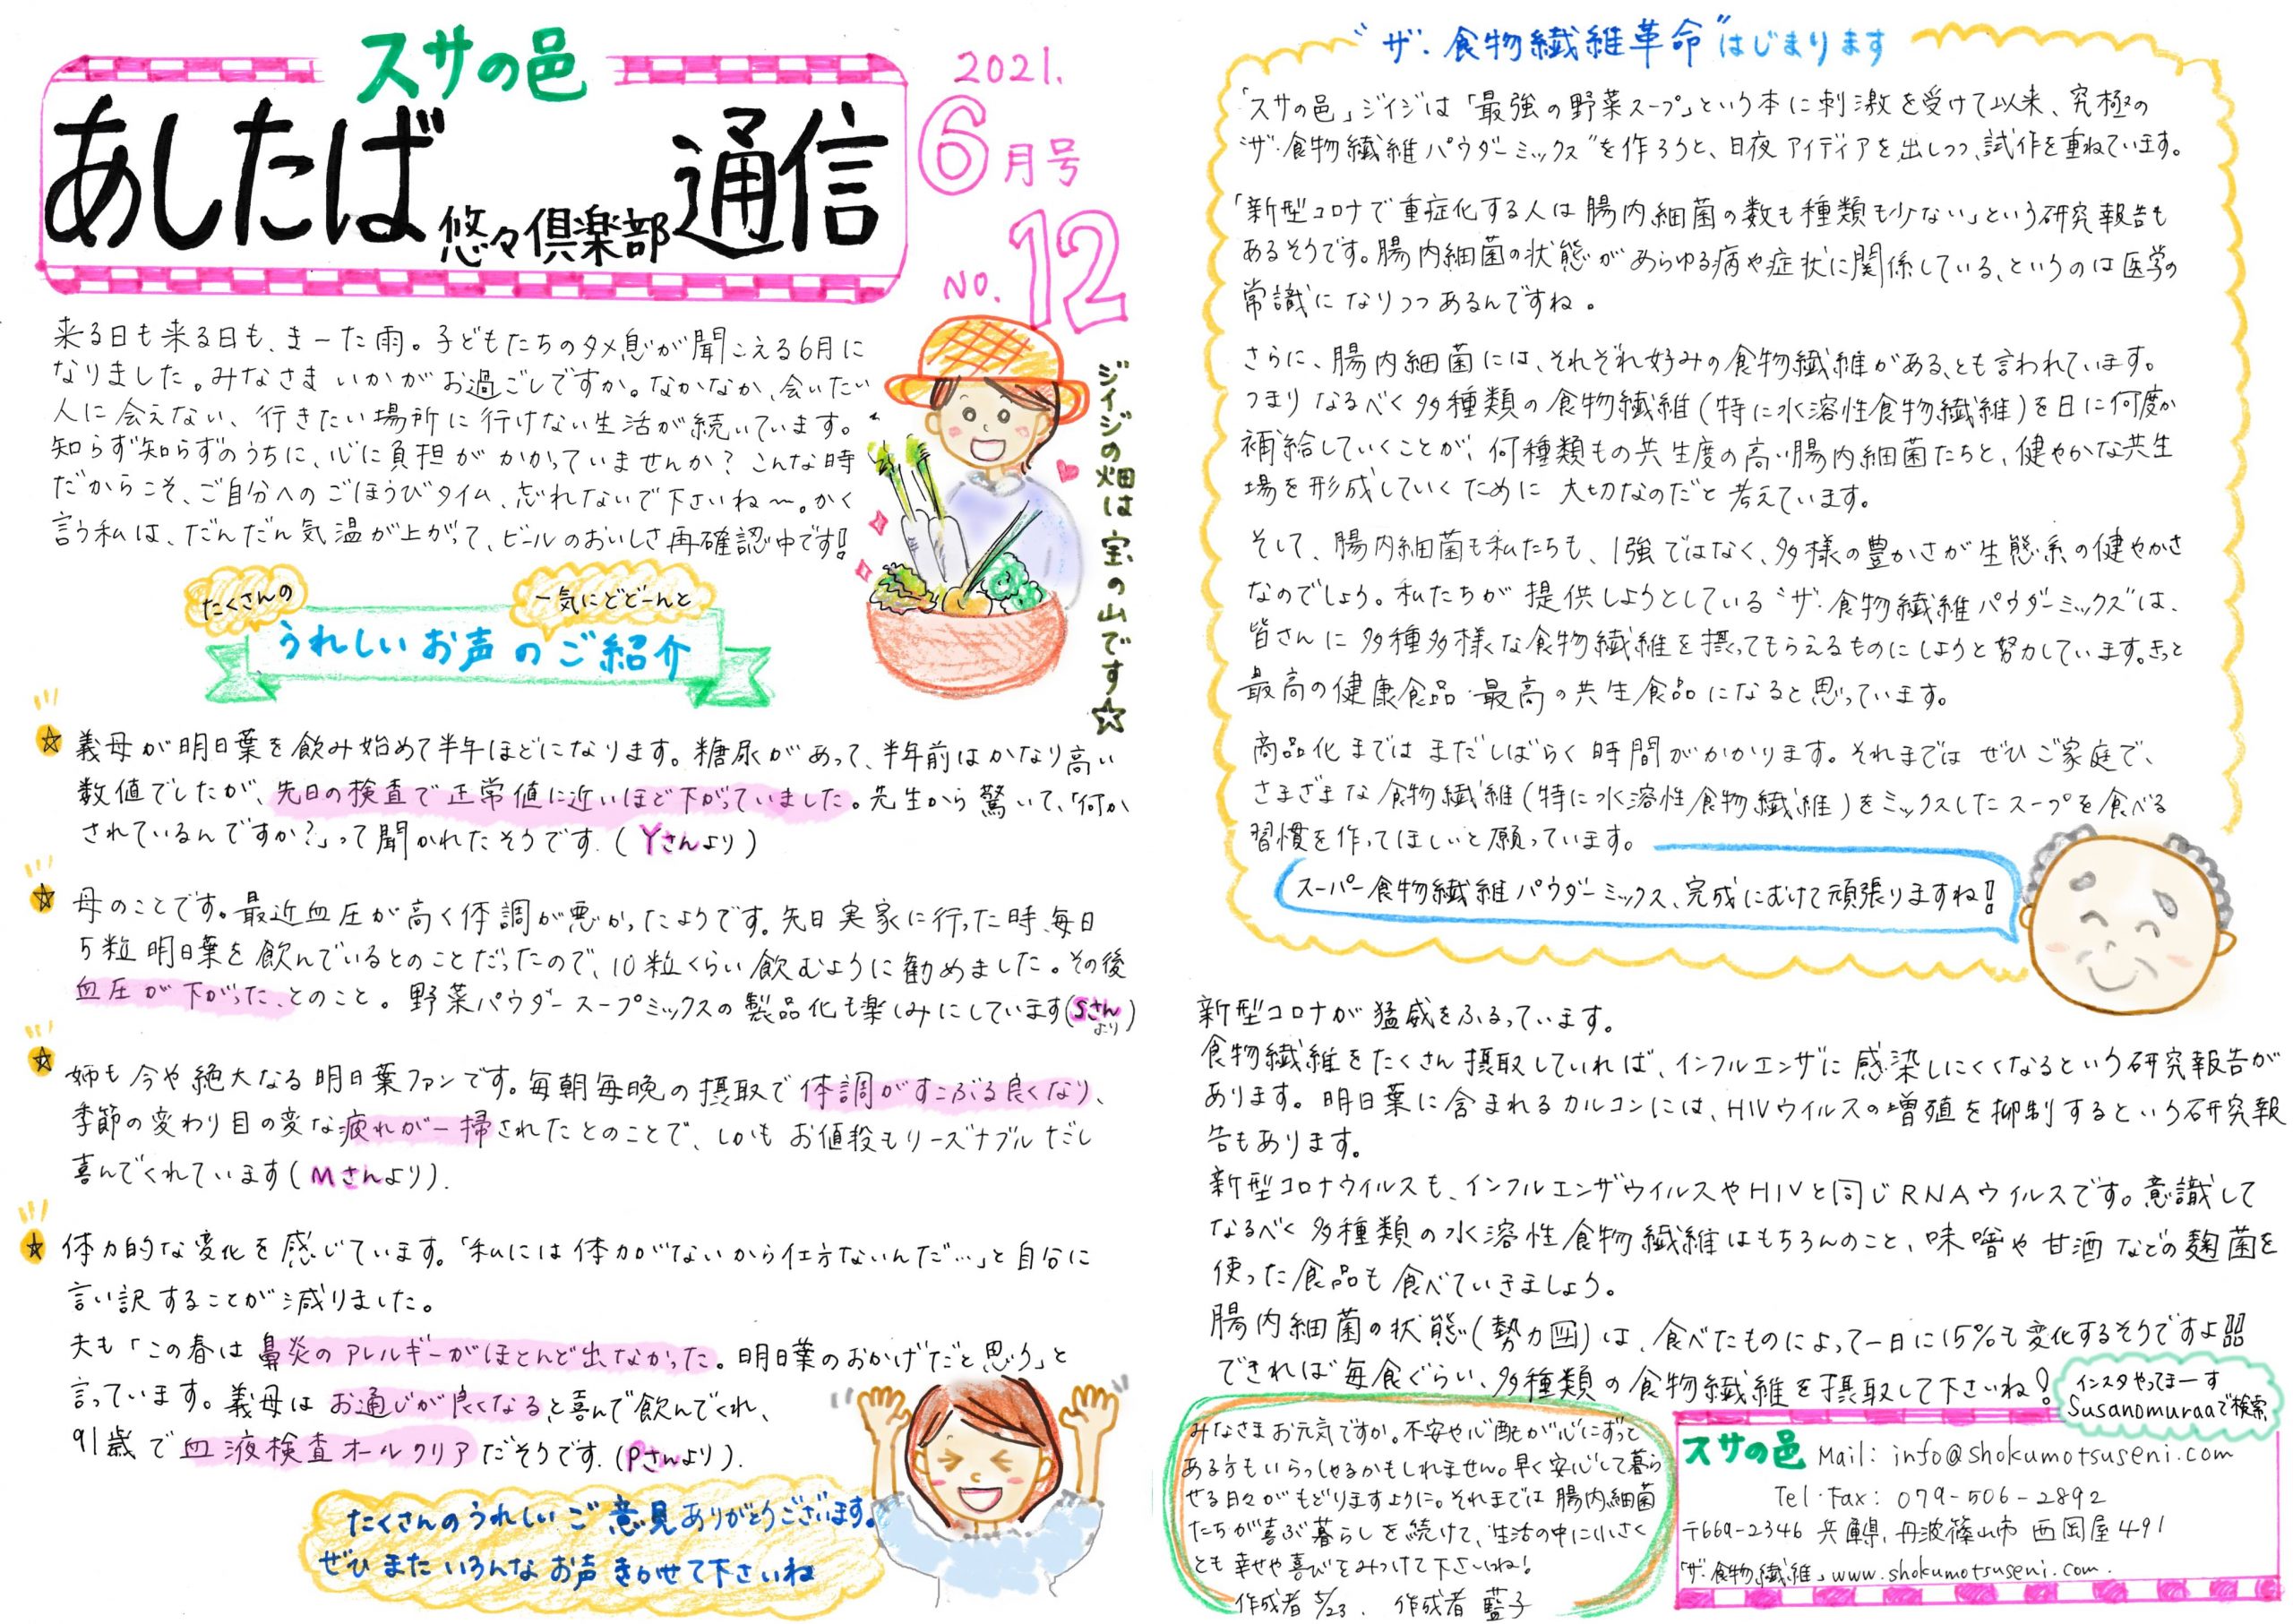 スサの邑
あしたば悠々倶楽部通信
2021.
6月号
NO.12
来る日も来る日も、まーた雨。子どもたちのタメ息が聞こえる6月に
なりました。みなさまいかがお過ごしですか。なかなか、会いたい
人に会えない、行きたい場所に行けない生活が続いています。
知らず知らずのうちに、心に負担がかかっていませんか?こんな時
だからこそ、ご自分へのごほうびタイム、忘れないで下さいね〜。かく
言う私は、だんだん気温が上がって、ビールのおいしさ再確認中です!!
ジイジの畑は宝の山です☆
たくさんの
一気にどどーんと
うれしいお声のご紹介
☆義母が明日葉を飲み始めて半年ほどになります。糖尿があって、半年前はかなり高い
数値でしたが、先日の検査で正常値に近いほど下がっていました。先生から驚いて、「何か
されているんですか?」って聞かれたそうです.(Yさんより)
☆母のことです。最近血圧が高く体調が悪かったようです。先日実家に行った時、毎日
5粒明日葉を飲んでいるとのことだったので、10粒くらい飲むように勧めました。その後
血圧が下がった、とのこと。野菜パウダースープミックスの製品化も楽しみにしています(Sさんより)
☆姉も今や絶大なる明日葉ファンです。毎朝毎晩の摂取で体調がすこぶる良くなり、
季節の変わり目の変な疲れが一掃されたとのことで、しかもお値段もリーズナブルだし
喜んでくれています(Mさんより).
☆体力的な変化を感じています。「私には体力がないから仕方ないんだ…」と自分に
言い訳することが減りました。
夫も「この春は鼻炎のアレルギーがほとんど出なかった。明日葉のおかげだと思う」と
言っています。義母はお通じが良くなると喜んで飲んでくれ、
91歳で血液検査オールクリアだそうです.(Pさんより).
たくさんのうれしいご意見ありがとうございます。
ぜひまたいろんなお声きかせて下さいね
“ザ・食物繊維革命”はじまります
「スサの邑」ジイジは「最強の野菜スープ」という本に刺激を受けて以来、究極の
“ザ・食物繊維パウダーミックス”を作ろうと、日夜アイディアを出しつつ、試作を重ねています。
「新型コロナで重症化する人は腸内細菌の数も種類も少ない」という研究報告も
あるそうです。腸内細菌の状態があらゆる病や症状に関係している、というのは医学の
常識になりつつあるんですね。
さらに、腸内細菌には、それぞれ好みの食物繊維がある、とも言われています。
つまりなるべく多種類の食物繊維(特に水溶性食物繊維)を日に何度か
補給していくことが、何種類もの共生度の高い腸内細菌たちと、健やかな共生
場を形成していくために大切なのだと考えています。
そして、腸内細菌も私たちも、1強ではなく、多様の豊かさが生態系の健やかさ
なのでしょう。私たちが提供しようとしている“ザ・食物繊維パウダーミックス”は、
皆さんに多種多様な食物繊維を摂ってもらえるものにしようと努力しています。きっと
最高の健康食品・最高の共生食品になると思っています。
商品化まではまだしばらく時間がかかります。それまではぜひご家庭で、
さまざまな食物繊維(特に水溶性食物繊維)をミックスしたスープを食べる
習慣を作ってほしいと願っています。
スーパー食物繊維パウダーミックス、完成にむけて頑張りますね!
新型コロナが猛威をふるっています。
食物繊維をたくさん摂取していれば、インフルエンザに感染しにくくなるという研究報告が
あります。明日葉に含まれるカルコンには、HIVウイルスの増殖を抑制するという研究報
告もあります。
新型コロナウイルスも、インフルエンザウイルスやHIVと同じRNAウイルスです。意識して
なるべく多種類の水溶性食物繊維はもちろんのこと、味噌や甘酒などの麹菌を
使った食品も食べていきましょう。
腸内細菌の状態(勢力図)は、食べたものによって一日に15%も変化するそうですよ!!
できれば毎食ぐらい、多種類の食物繊維を摂取して下さいね!
インスタやってまーす
Susanomuraaで検索
みなさまお元気ですか。不安や心配が心にずっと
ある方もいらっしゃるかもしれません。早く安心して暮ら
せる日々がもどりますように。それまでは腸内細菌
たちが喜ぶ暮らしを続けて、生活の中に小さく
とも幸せや喜びをみつけて下さいね!
作成者5/23. 作成者 藍子
スサの邑 Mail: info@shokumotsuseni.com
Tel・Fax: 079-506-2892
〒669-2346 兵庫県,丹波篠山市 西岡屋491
「ザ・食物繊維」www.shokumotsuseni.com.